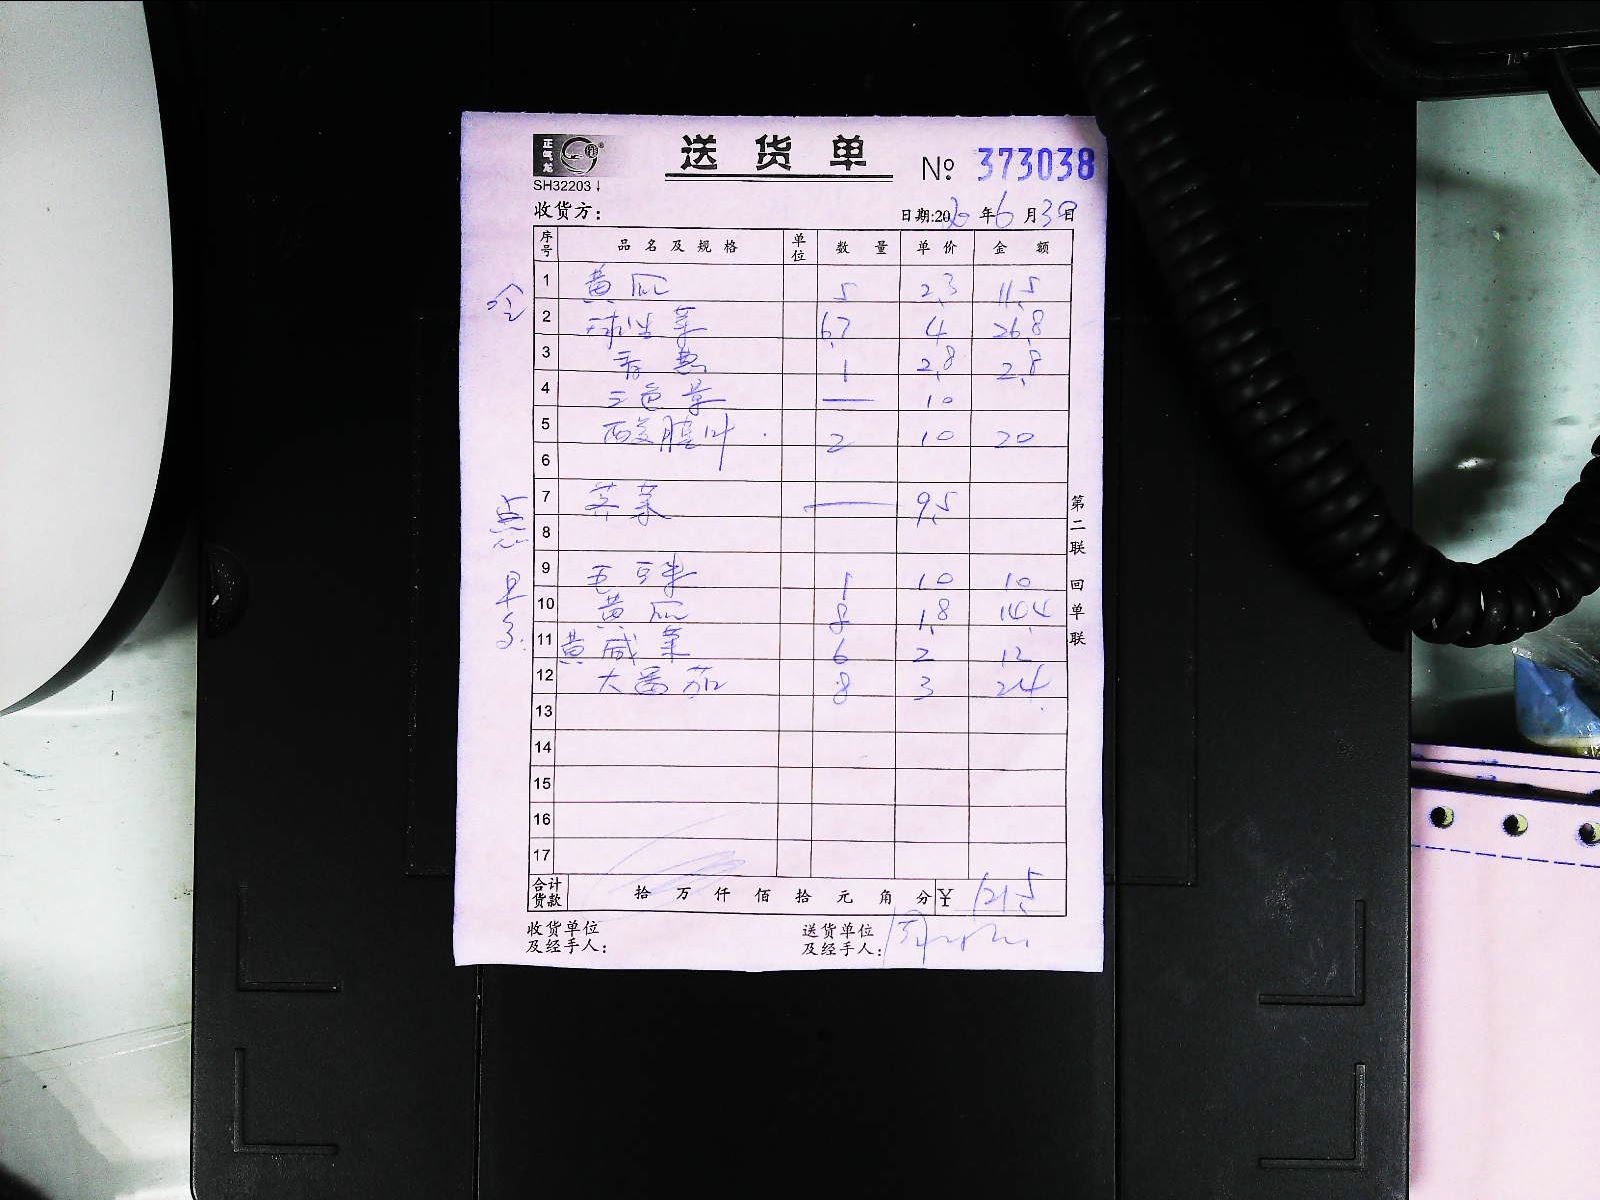 正气龙
送货单 № 373038
SH32203↓
收货方: 日期:20 年6月30日
序号 品名及规格 单位 数量 单价 金额
1 黄瓜 5 2.3 11.5
2 球生菜 6.7 4 26.8
3 香葱 1 2.8 2.8
4 三色草 — 10
5 酸膜叶 2 10 20
6
7 荠菜 — 9.5
8
9 毛豆米 1 10 10
10 黄瓜 8 1.8 14.4
11 黄咸菜 6 2 12
12 大番茄 8 3 24
13
14
15
16
17
合计货款 拾 万 仟 佰 拾 元 角 分 ¥ 121.5
收货单位及经手人: 送货单位及经手人:
点
早
第二联 回单联